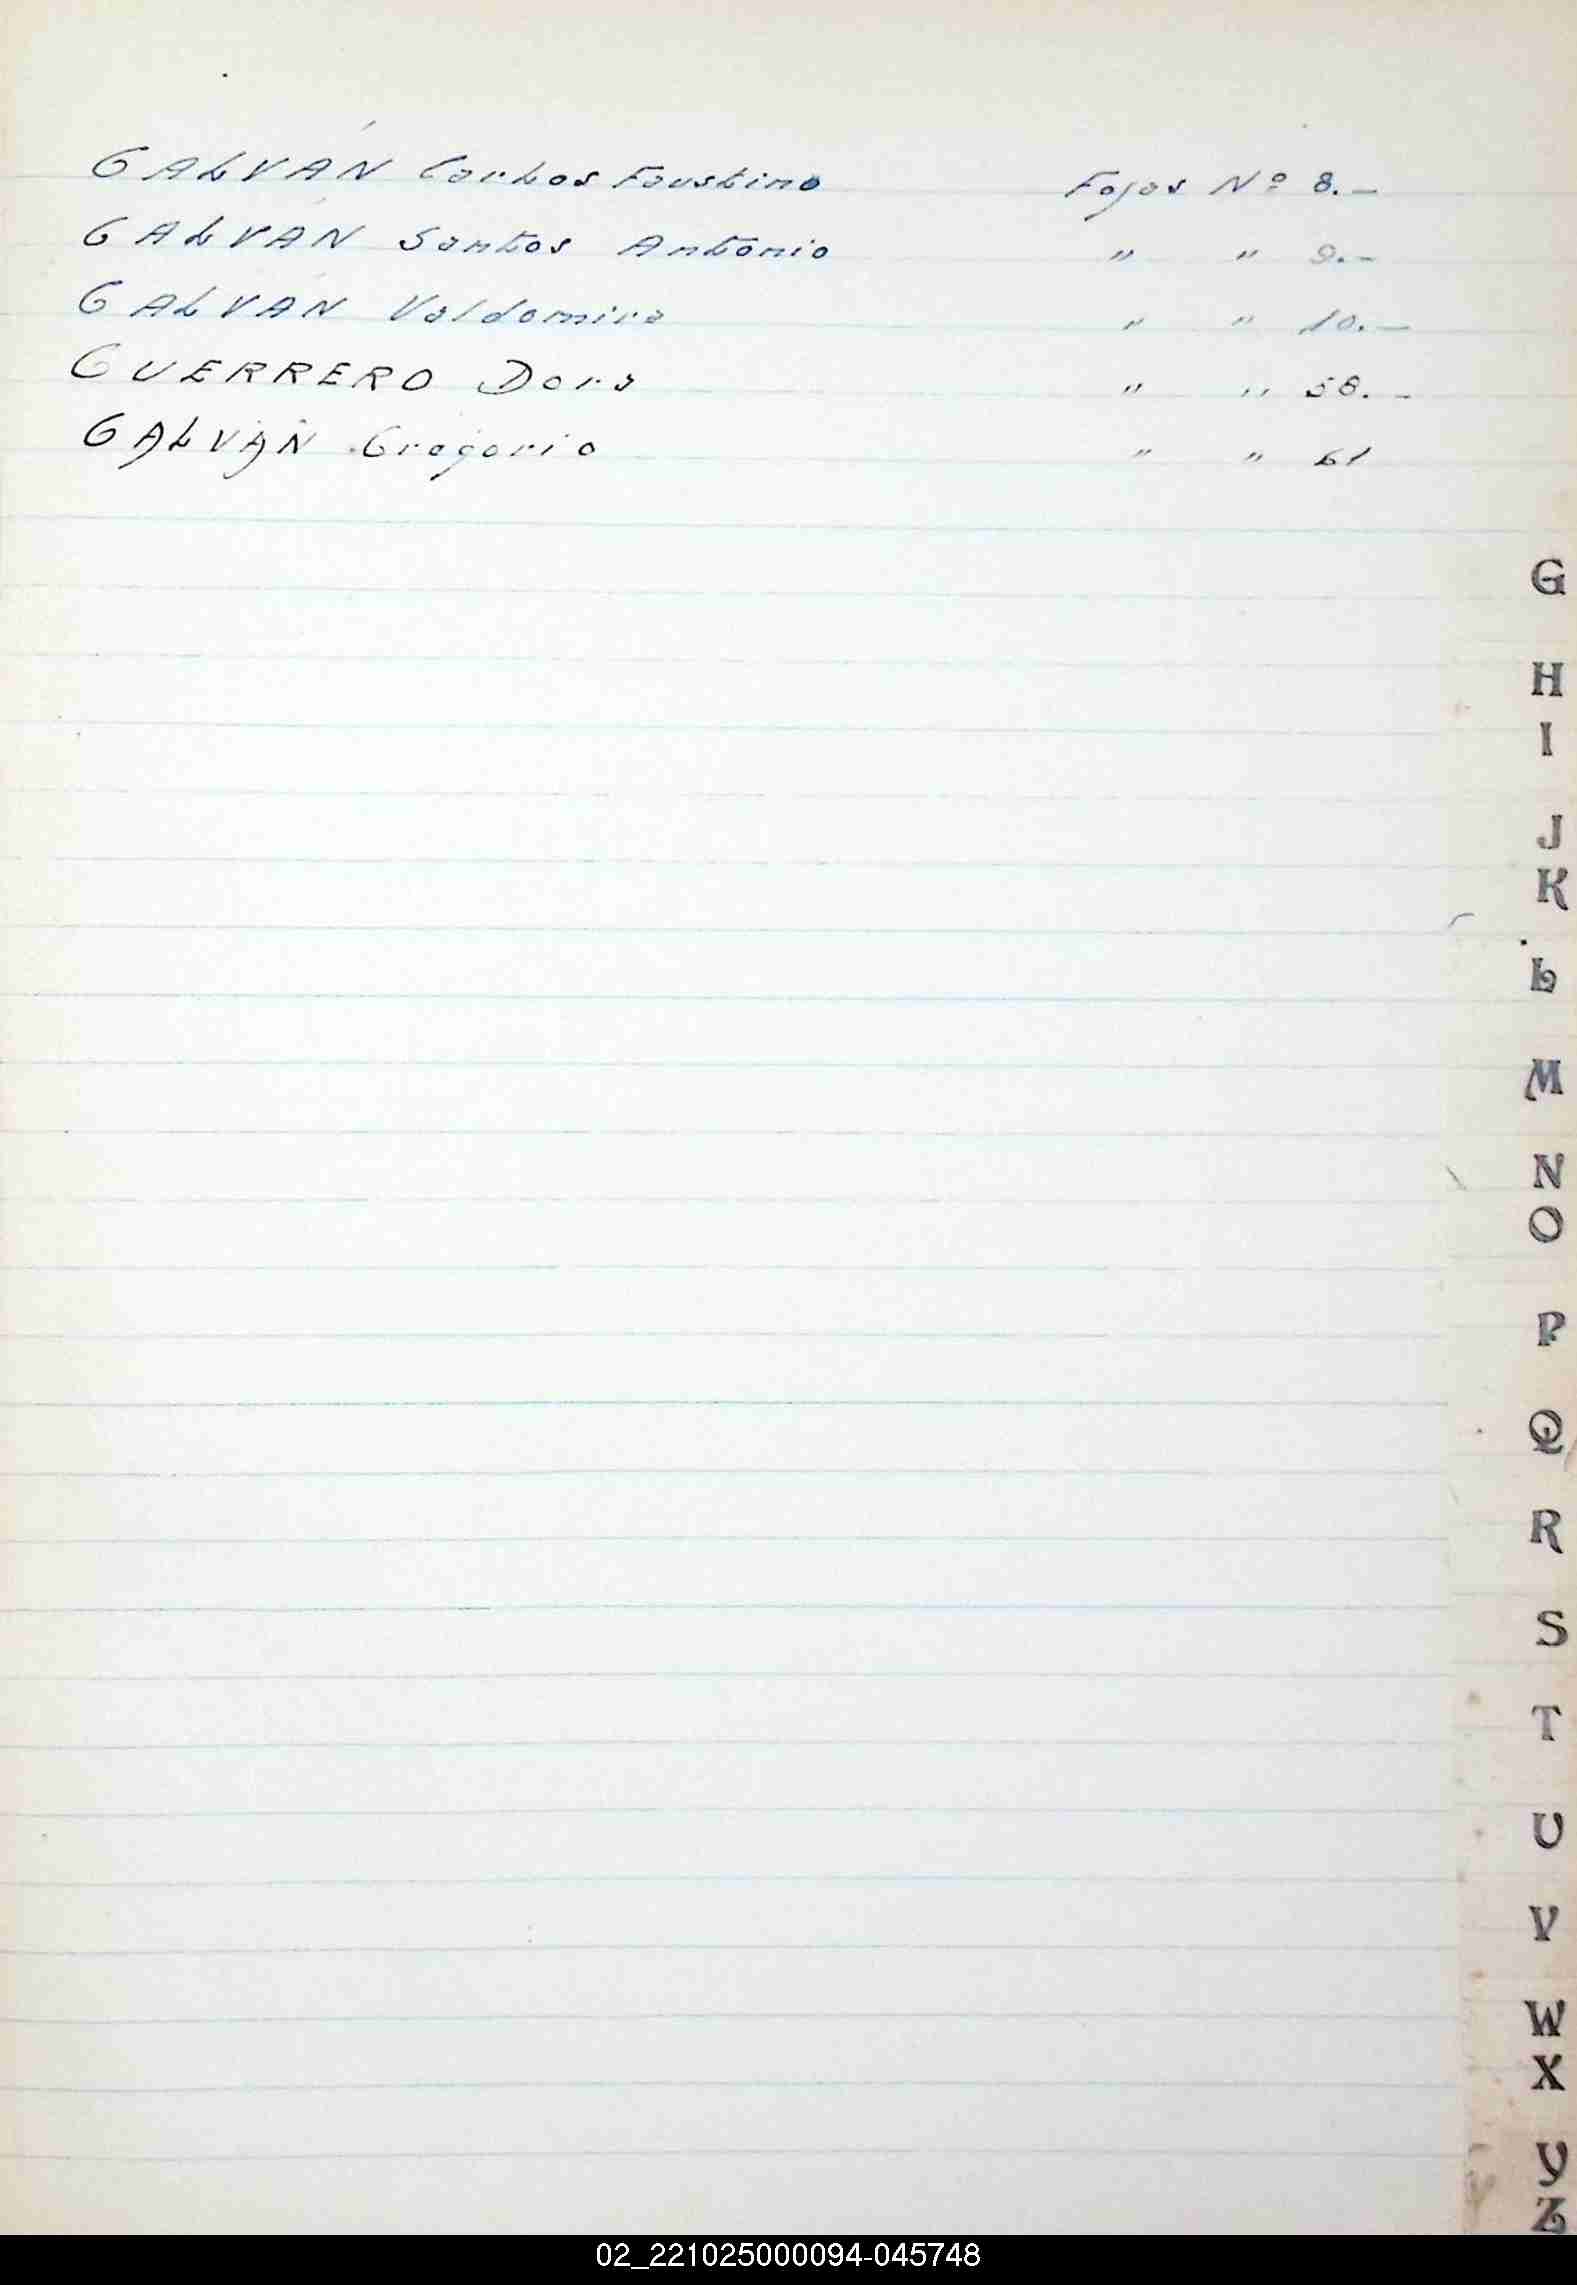 GALVÁN Carlos Faustino Fojas Nº 8.-
GALVÁN Santos Antonio " " 9.-
GALVÁN Valdomiro " " 10.-
GUERRERO Dora " " 58.-
GALVÁN Gregorio " " 61
G
H
I
J
K
L
M
N
O
P
Q
R
S
T
U
V
W
X
Y
Z
02_221025000094-045748